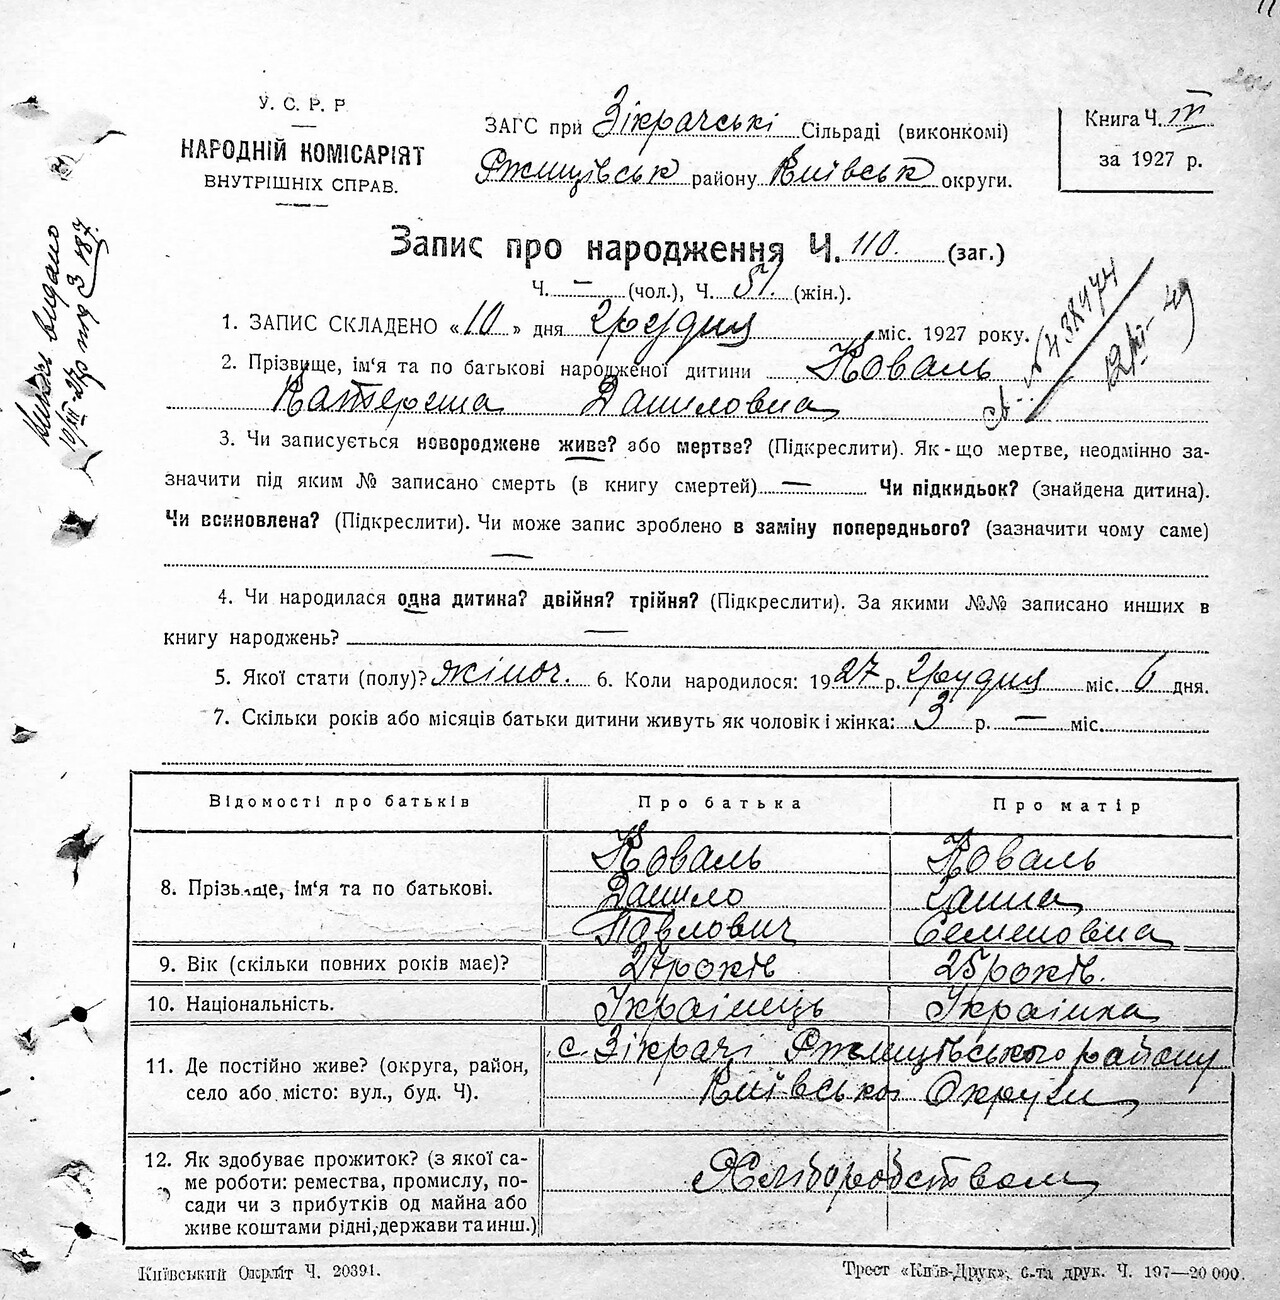 У. С. Р. Р
НАРОДНІЙ КОМІСАРІЯТ
ВНУТРІШНІХ СПРАВ.
ЗАГС при Зікрачські Сільраді (виконкомі)
Ржищівськ району Київськ округи.
Книга Ч. IV
за 1927 р.
Запис про народження Ч. 110. (заг.)
Ч. — (чол.), Ч. 51. (жін.).
1. ЗАПИС СКЛАДЕНО «10» дня грудня міс. 1927 року.
2. Прізвище, ім'я та по батькові народженої дитини Коваль
Катерина Даниловна
№ 438474
12/VII-49
видано
10/XII-27р під З 487.
3. Чи записується новороджене живе? або мертве? (Підкреслити). Як-що мертве, неодмінно за-
значити під яким № записано смерть (в книгу смертей) — Чи підкидьок? (знайдена дитина).
Чи всиновлена? (Підкреслити). Чи може запис зроблено в заміну попереднього? (зазначити чому саме)
—
4. Чи народилася одна дитина? двійня? трійня? (Підкреслити). За якими №№ записано инших в
книгу народжень? —
5. Якої стати (полу)? жіноч. 6. Коли народилося: 1927 р. грудня міс. 6 дня.
7. Скільки років або місяців батьки дитини живуть як чоловік і жінка: 3 р. — міс.
Відомості про батьків Про батька Про матір
8. Прізвище, ім'я та по батькові.
Коваль Коваль
Данило Ганна
Павлович Семеновна
9. Вік (скільки повних років має)? 27 років 25 років.
10. Національність. Українець Українка
11. Де постійно живе? (округа, район,
село або місто: вул., буд. Ч).
с. Зікрачі Ржищівського району
Київської Округи
12. Як здобуває прожиток? (з якої са-
ме роботи: ремества, промислу, по-
сади чи з прибутків од майна або
живе коштами рідні, держави та инш.)
Хліборобством
Київський Окрліт Ч. 20391.
Трест «Київ-Друк», 6-та друк. Ч. 197—20 000.